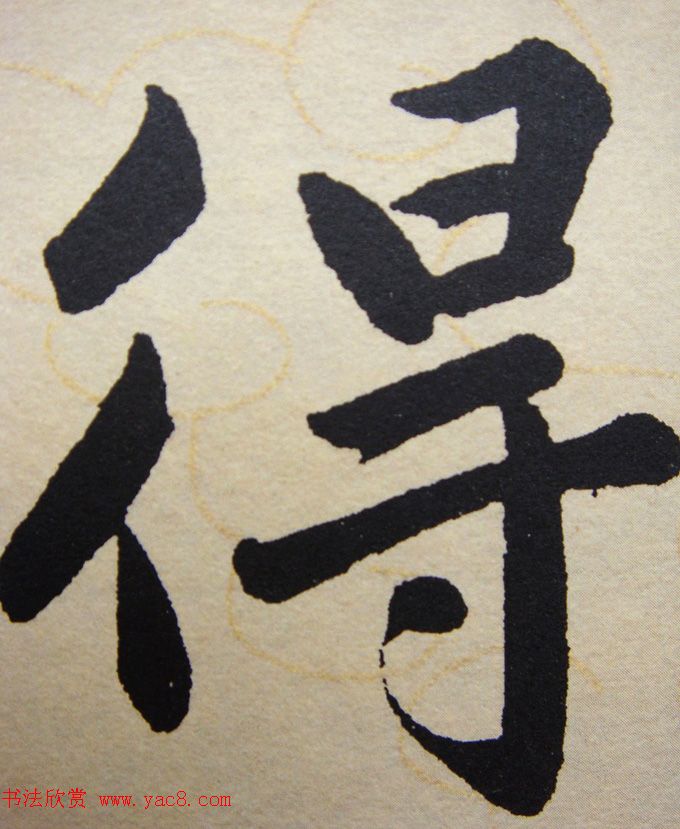 得
书法欣赏 www.yac8.com